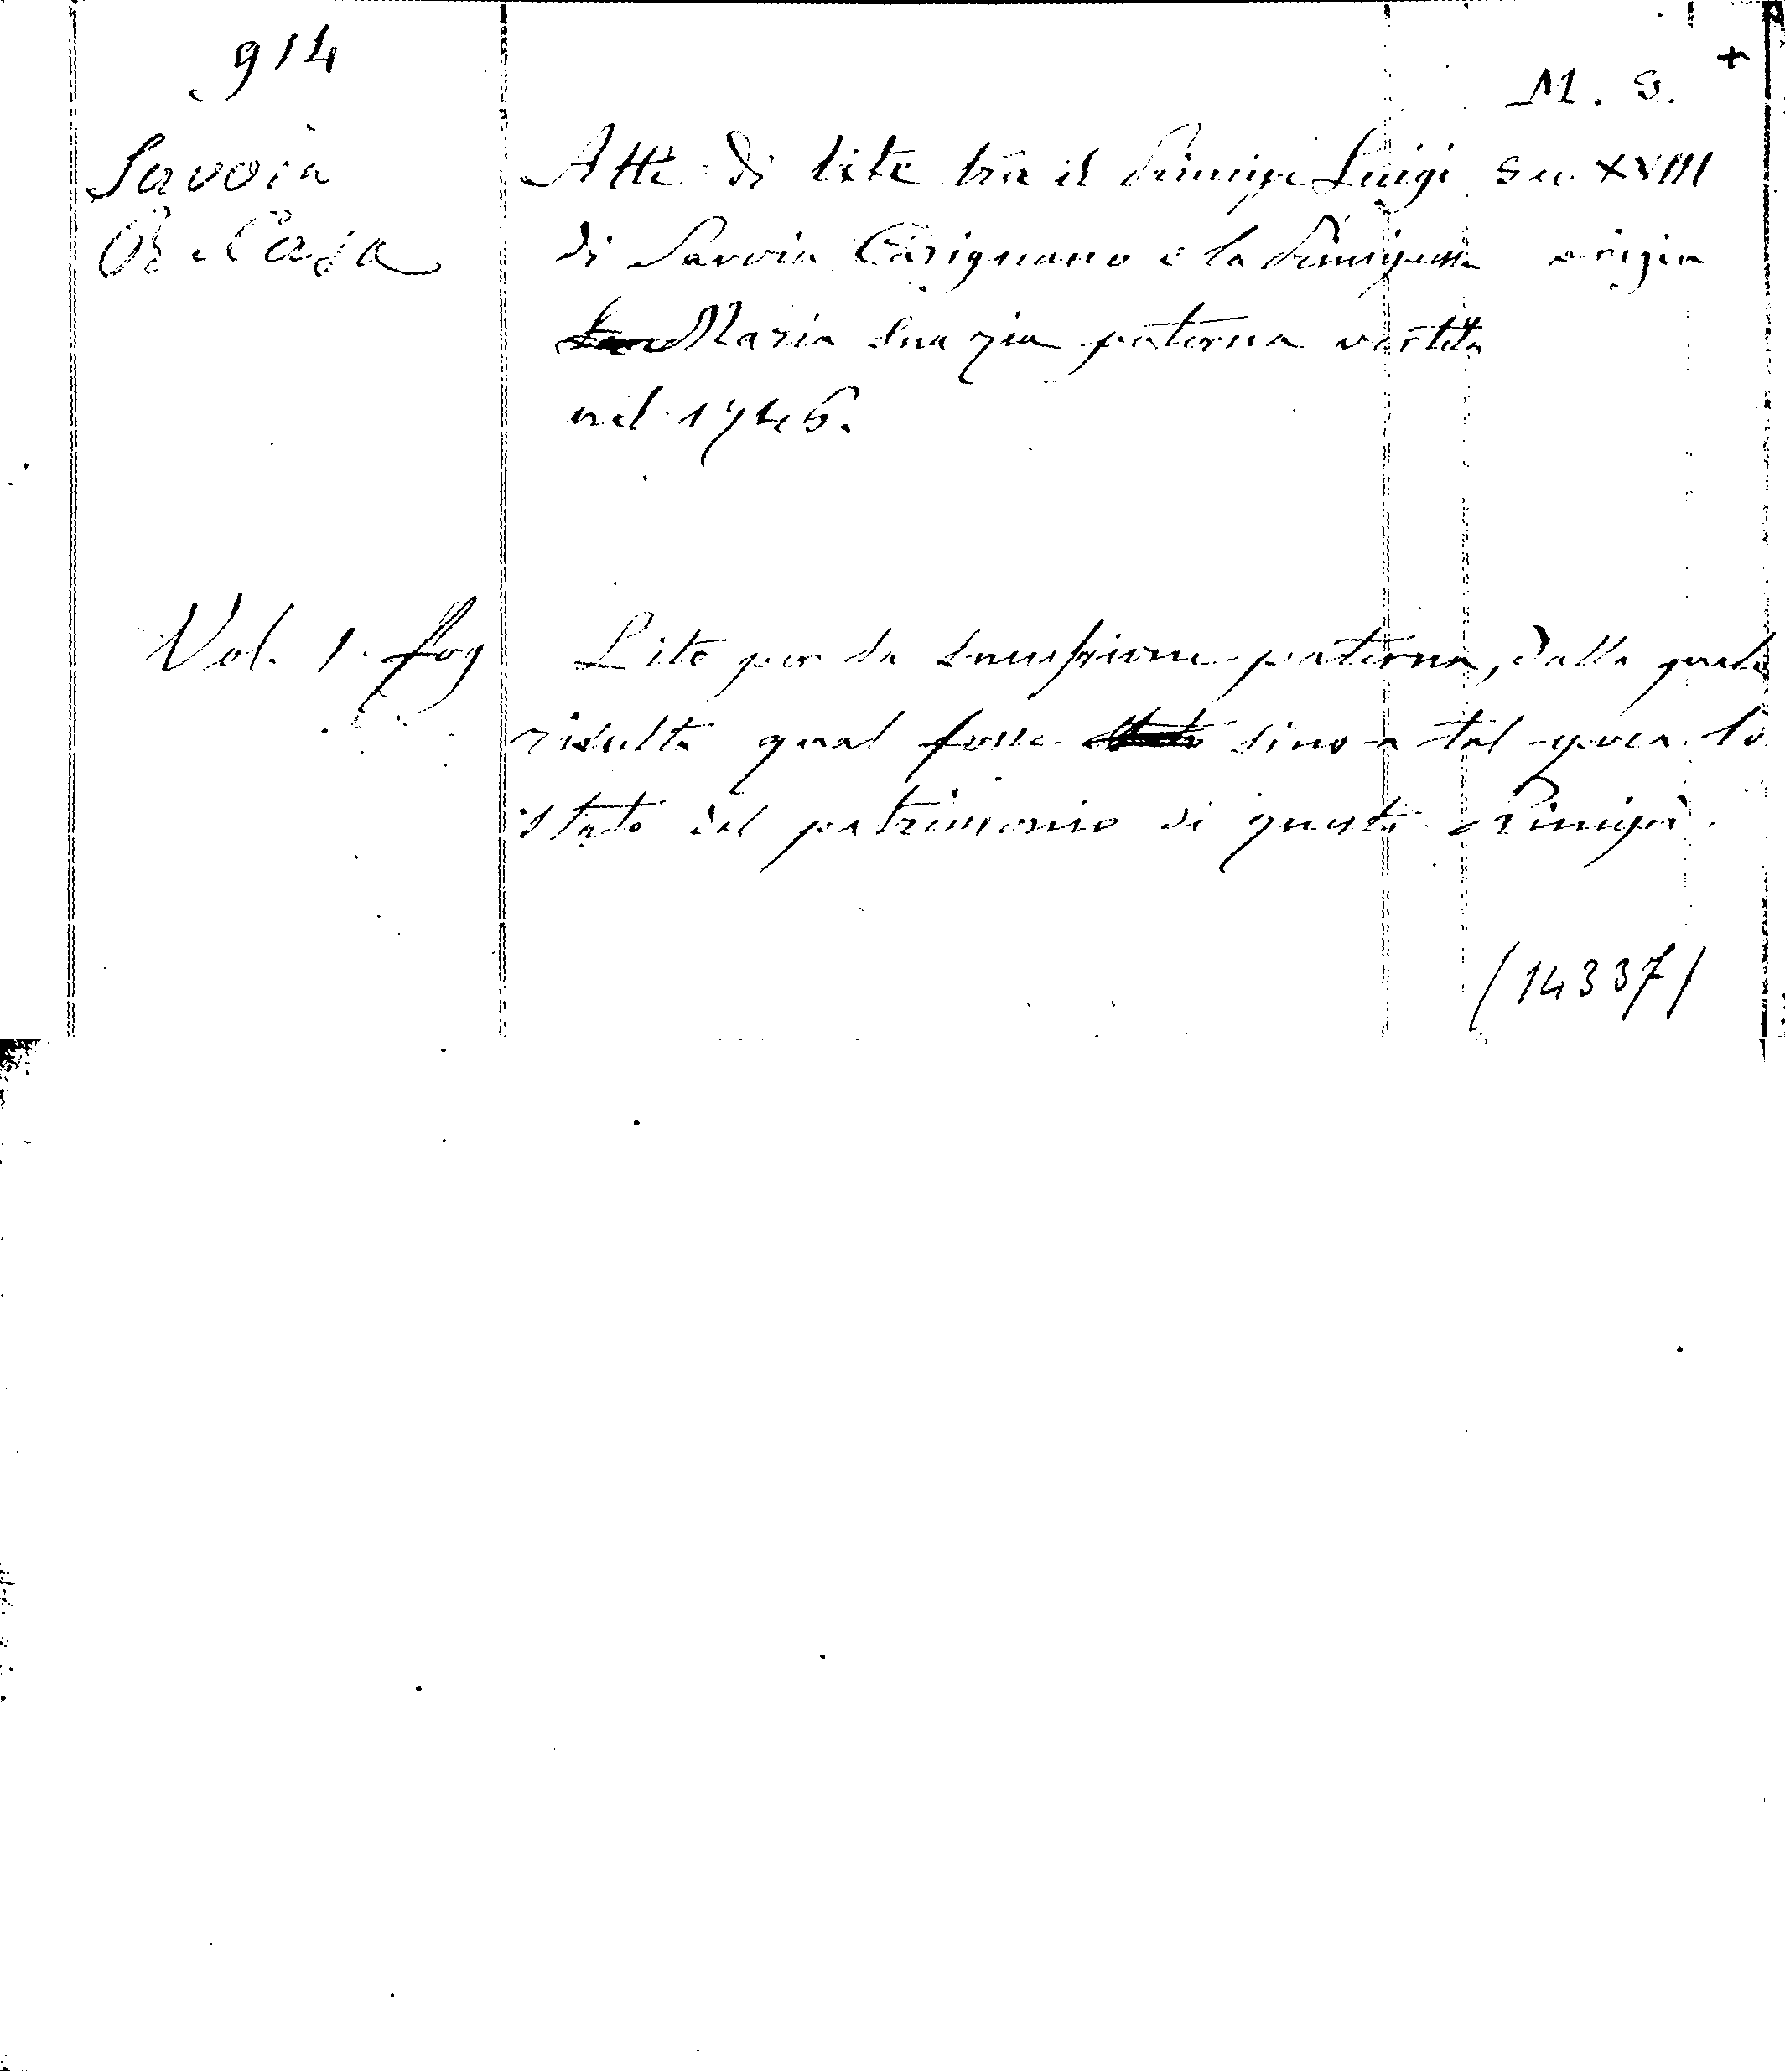 914
M. S. +
Savoia
R. Casa
Atti di lite tra il Principe Luigi
di Savoia Carignano e la Principessa
Maria sua zia paterna vertita
nel 1746.
Sec. XVIII
origin
Vol. 1. fog
Lite per la successione paterna, dalla quale
risulta qual fosse sino a tal epoca lo
stato del patrimonio di questi Principi.
(14337)